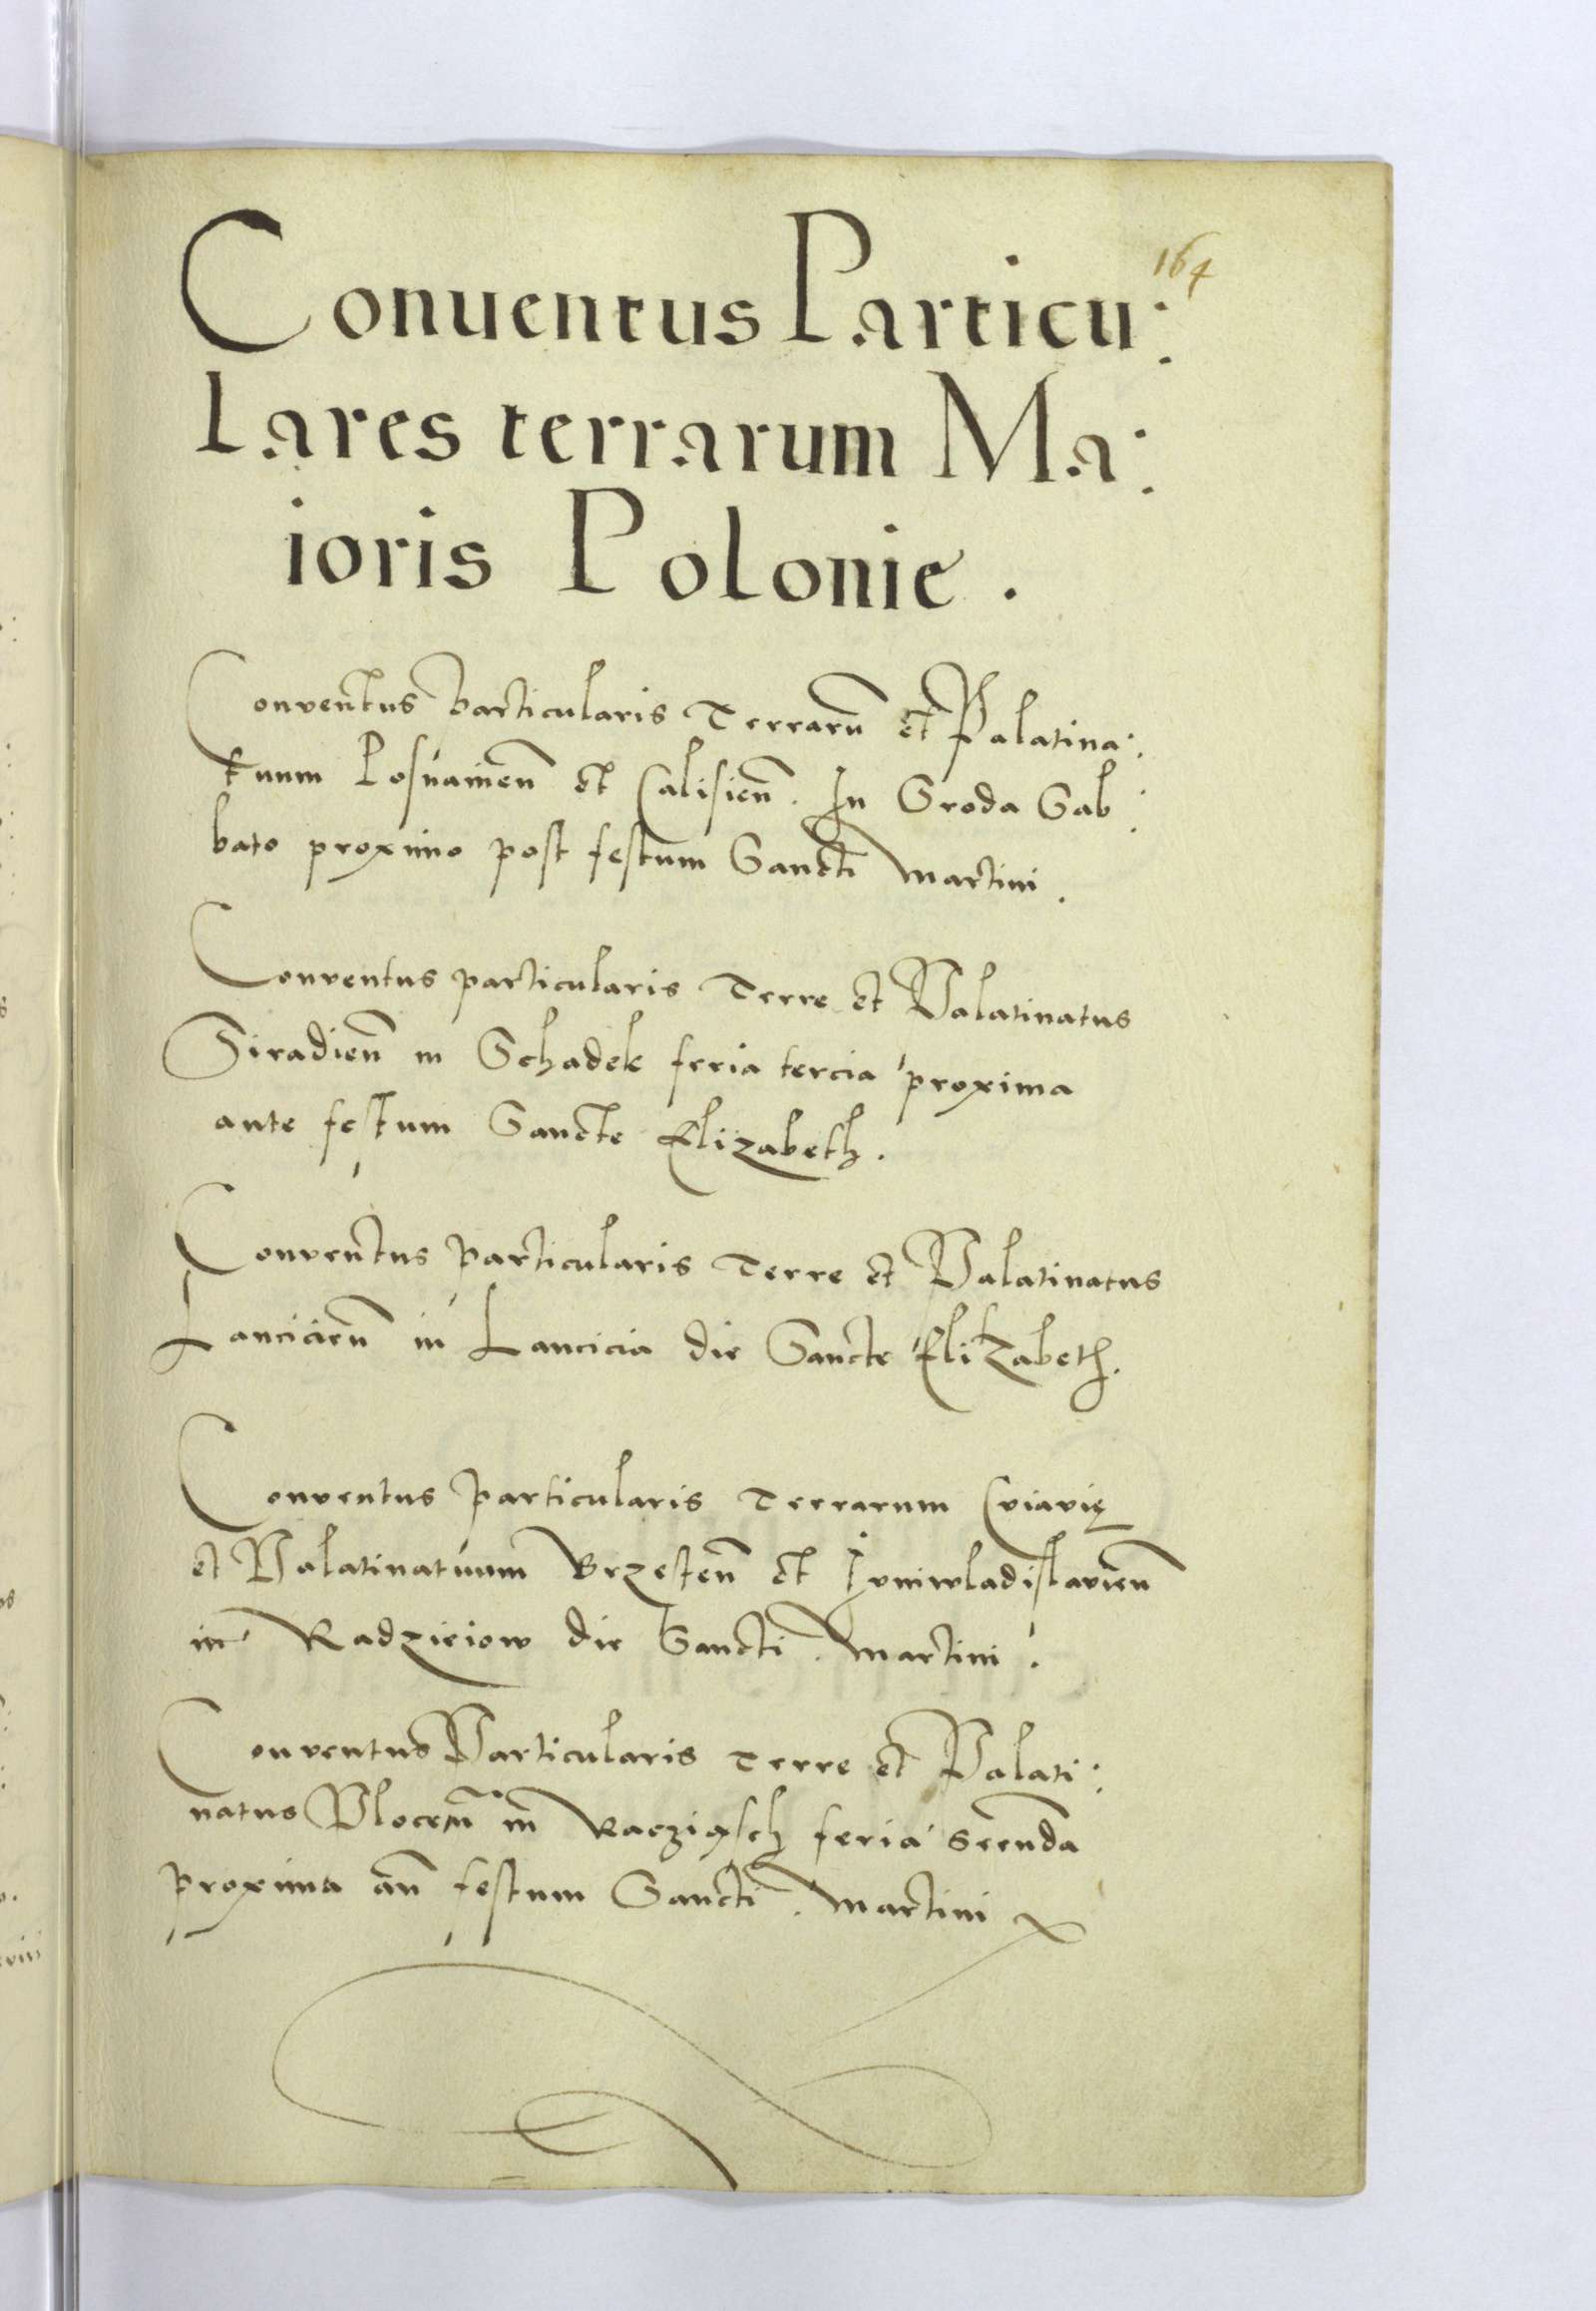 164
Conuentus Particu:
lares terrarum Ma:
ioris Polonie.
Conventus particularis Terrarū et Palatina:
tuum Posnaniēn et Calisiēn. In Sroda Sab:
bato proximo post festum Sancti Martini.
Conventus particularis Terre et Palatinatus
Siradiēn in Schadek feria tercia proxima
ante festum Sancte Elizabeth.
Conventus particularis Terre et Palatinatus
Lanciciēn in Lancicia die Sancte Elizabeth.
Conventus particularis Terrarum Cviavię
et Palatinatuum Brzestēn et Iuniwladislaviēn
in Radzieiow die Sancti Martini.
Conventus Particularis Terre et Palati:
natus Plocēn in Raczięsch feria secunda
proxima añ festum Sancti Martini